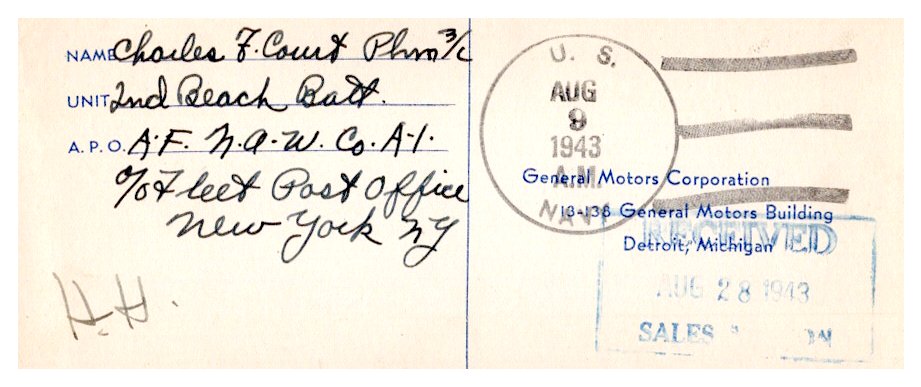 NAME Charles F. Court Phm 3/c
UNIT 2nd Beach Batt.
A.P.O. A.F. N.A.W. Co. A-1.
c/o Fleet Post Office
New York NY
H.H.
U. S.
AUG
9
1943
A.M.
NAVY
General Motors Corporation
13-138 General Motors Building
Detroit, Michigan
RECEIVED
AUG 28 1943
SALES